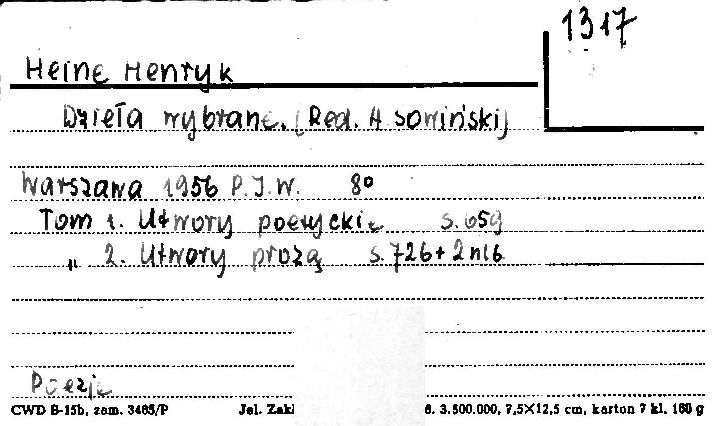 1317
Heine Henryk
Dzieła wybrane. (Red. A Sowiński)
Warszawa 1956 P.I.W. 8°
Tom 1. Utwory poetyckie s. 659
" 2. Utwory prozą s. 726 + 2 nlb
Poezje
CWD B-15b, zam. 3465/P Jel. Zakł 6. 3.500.000, 7,5×12,5 cm, karton 7 kl. 160 g